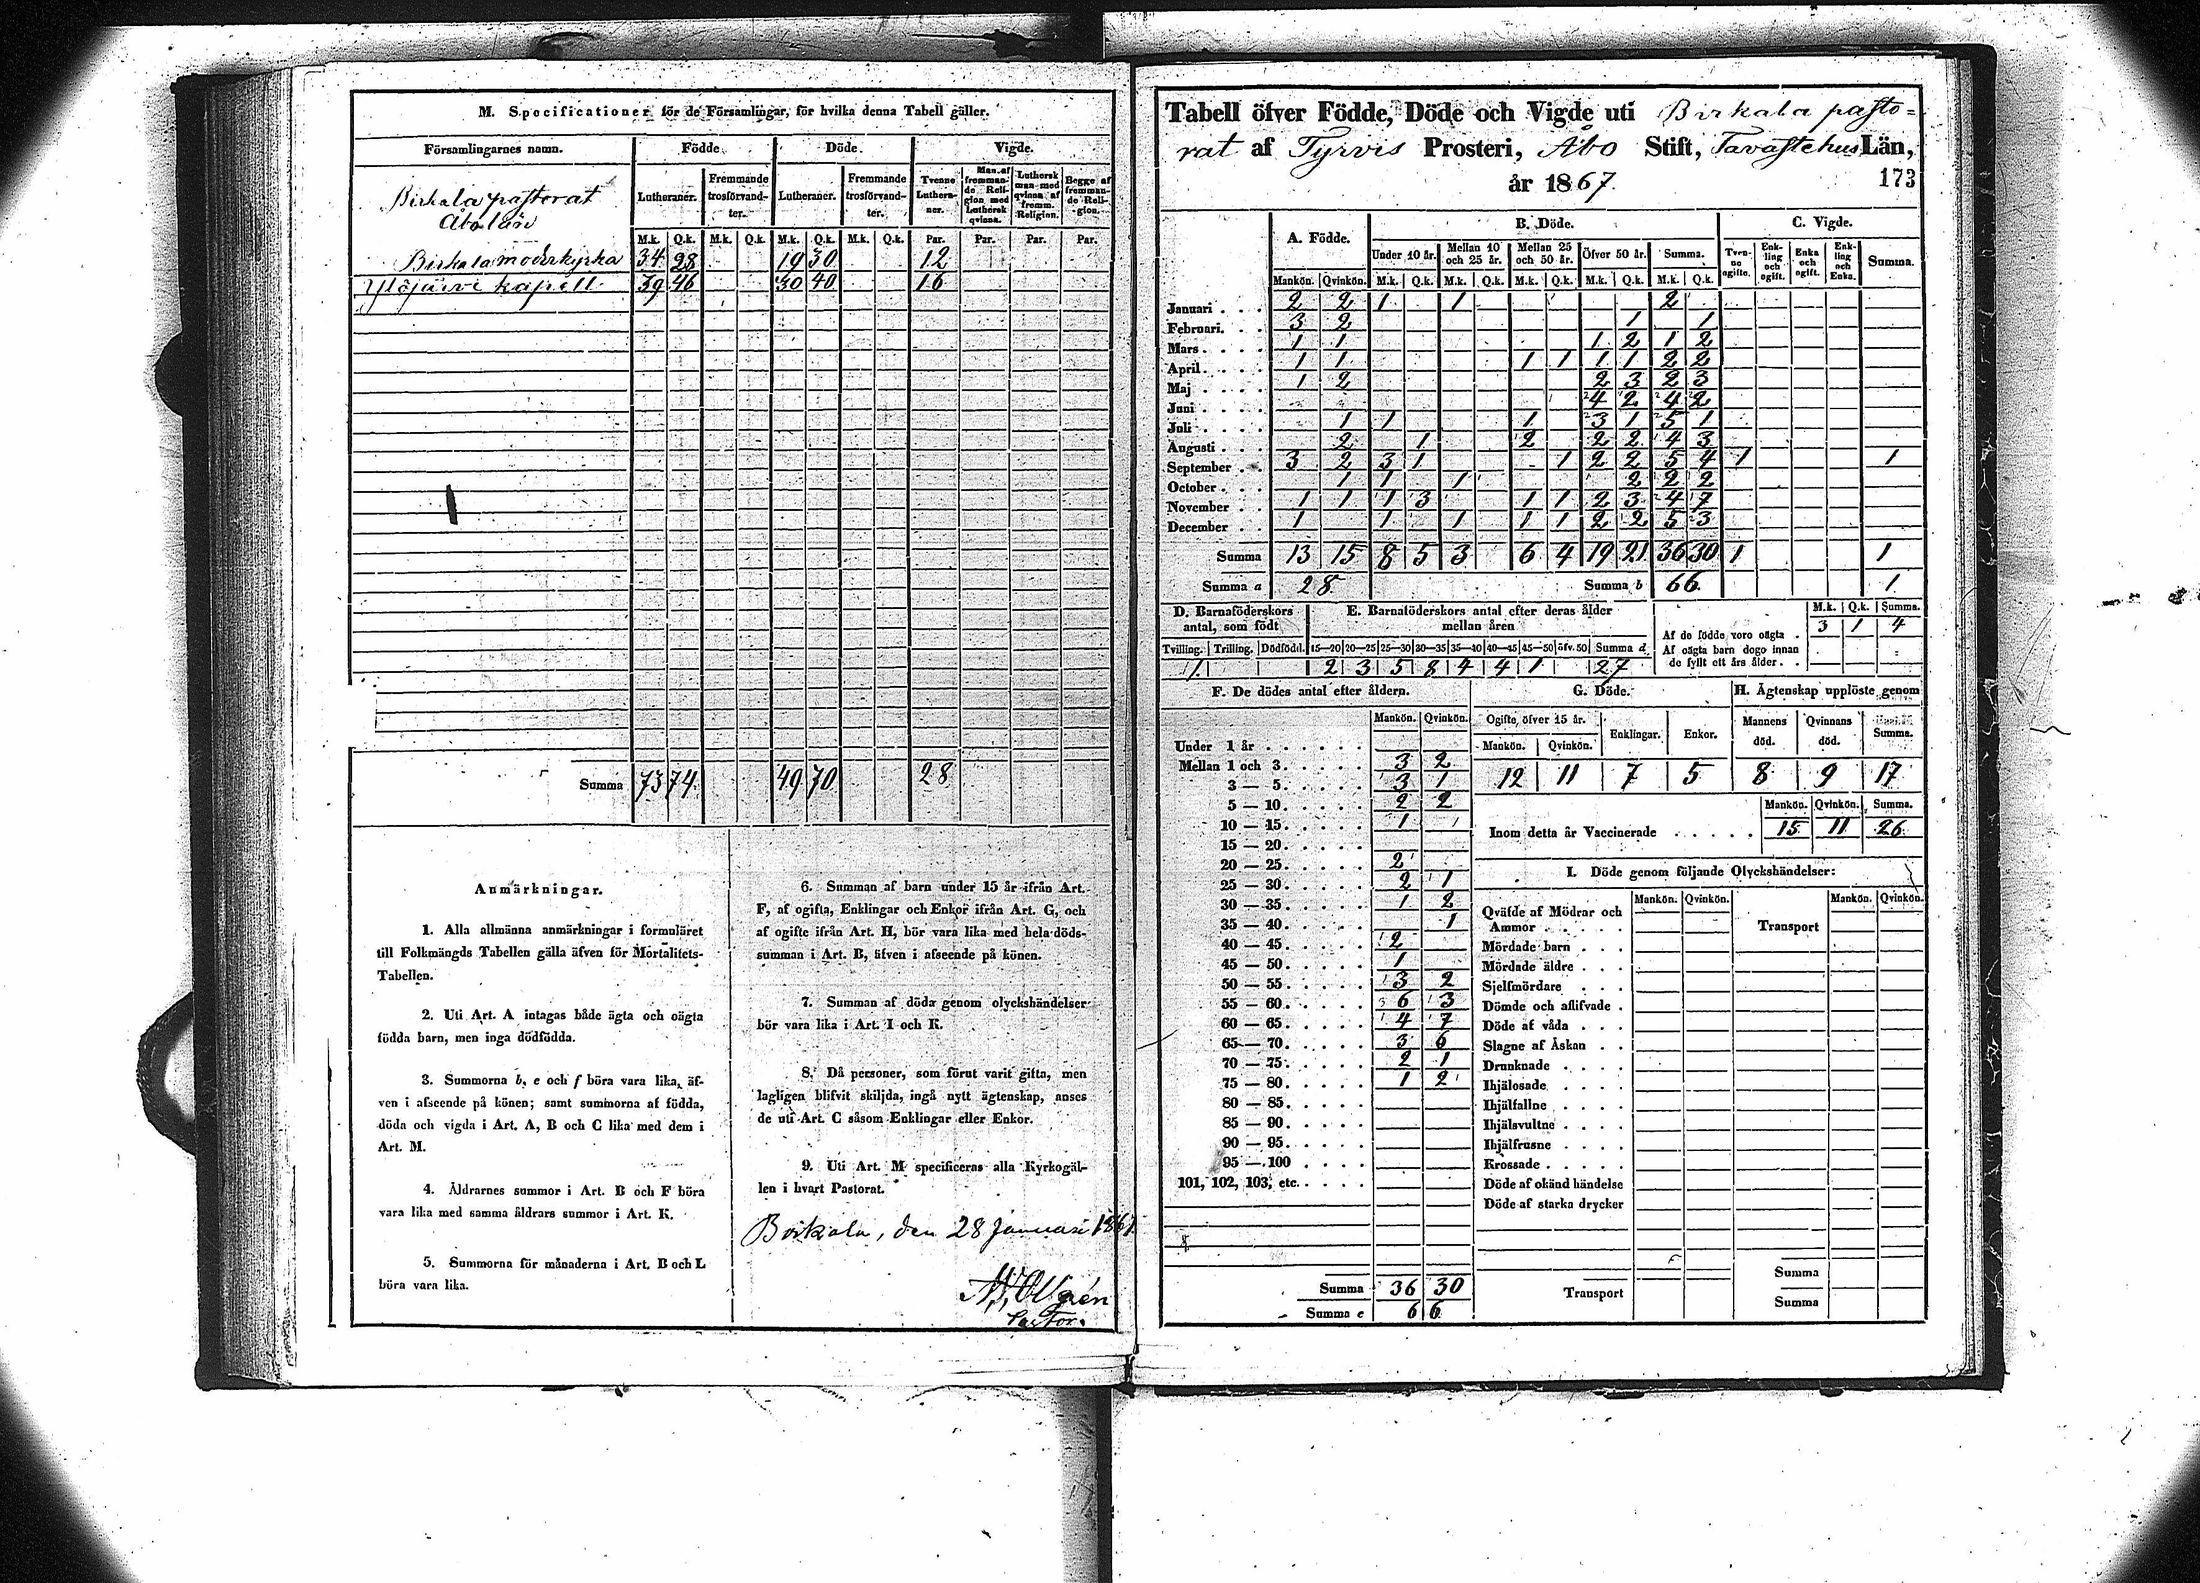 M. Specificationer för de Församlingar, för hvilka denna Tabell gäller.
Församlingarnes namn. Födde. Döde. Vigde.
Lutheraner. Fremmande trosförvandter. Lutheraner. Fremmande trosförvandter. Tvenne Lutheraner. Man af fremmande Religion med Luthersk qvinna. Luthersk man med qvinna af fremm. Religion. Begge af fremmande Religion.
M.k. Q.k. M.k. Q.k. M.k. Q.k. M.k. Q.k. Par. Par. Par. Par.
Birkala pastorat
Åbo län
Birkala moderkyrka 34 28 19 30 12
Ylöjärvi kapell 39 46 30 40 16
Summa 73 74 49 70 28
Anmärkningar.
1. Alla allmänna anmärkningar i formuläret
till Folkmängds Tabellen gälla äfven för Mortalitets-
Tabellen.
2. Uti Art. A intagas både ägta och oägta
födda barn, men inga dödfödda.
3. Summorna b, e och f böra vara lika, äf-
ven i afseende på könen; samt summorna af födda,
döda och vigda i Art. A, B och C lika med dem i
Art. M.
4. Åldrarnes summor i Art. B och F böra
vara lika med samma åldrars summor i Art. K.
5. Summorna för månaderna i Art. B och L
böra vara lika.
6. Summan af barn under 15 år ifrån Art.
F, af ogifta, Enklingar och Enkor ifrån Art. G, och
af ogifte ifrån Art. H, bör vara lika med hela döds-
summan i Art. B, äfven i afseende på könen.
7. Summan af döda genom olyckshändelser
bör vara lika i Art. I och K.
8. Då personer, som förut varit gifta, men
lagligen blifvit skiljda, ingå nytt ägtenskap, anses
de uti Art. C såsom Enklingar eller Enkor.
9. Uti Art. M specificeras alla Kyrkogäl-
len i hvart Pastorat.
Birkala, den 28 Januari
Pastor.
Tabell öfver Födde, Döde och Vigde uti Birkala pasto=
rat af Tyrvis Prosteri, Åbo Stift, Tavastehus Län,
år 1867.
173
A. Födde. B. Döde. C. Vigde.
Under 10 år. Mellan 10 och 25 år. Mellan 25 och 50 år. Öfver 50 år. Summa. Tvenne ogifte. Enkling och ogift. Enka och ogift. Enkling och Enka. Summa.
Mankön. Qvinkön. M.k. Q.k. M.k. Q.k. M.k. Q.k. M.k. Q.k. M.k. Q.k.
Januari 2 2 1 1 2
Februari. 3 2 1 1
Mars 1 1 1 2 1 2
April 1 1 1 1 1 1 2 2
Maj 1 2 2 3 2 3
Juni 4 2 4 2
Juli 1 1 1 3 1 5 1
Augusti 2 1 2 2 2 4 3
September 3 2 3 1 1 2 2 5 4 1 1
October 1 1 1 2 2 2
November 1 1 1 3 1 1 2 3 4 7
December 1 1 1 1 1 2 2 5 3
Summa 13 15 8 5 3 6 4 19 21 36 30 1 1
Summa a 28. Summa b 66. 1
D. Barnaföderskors antal, som födt E. Barnaföderskors antal efter deras ålder mellan åren M.k. Q.k. Summa.
Af de födde voro oägta 3 1 4
Af oägta barn dogo innan
de fyllt ett års ålder
Tvilling. Trilling. Dödfödd. 15—20 20—25 25—30 30—35 35—40 40—45 45—50 öfv. 50 Summa d
1. 2 3 5 8 4 4 1 27
F. De dödes antal efter åldern.
Mankön. Qvinkön.
Under 1 år
Mellan 1 och 3 3 2
3 — 5 3 1
5 — 10 2 2
10 — 15 1
15 — 20
20 — 25 2
25 — 30 2 1
30 — 35 1 2
35 — 40 1
40 — 45 2
45 — 50 1
50 — 55 3 2
55 — 60 6 3
60 — 65 4 7
65 — 70 3 6
70 — 75 2 1
75 — 80 1 2
80 — 85
85 — 90
90 — 95
95 — 100
101, 102, 103, etc.
Summa 36 30
Summa e 66
G. Döde. H. Ägtenskap upplöste genom
Ogifte öfver 15 år. Enklingar. Enkor. Mannens död. Qvinnans död. Summa.
Mankön. Qvinkön.
12 11 7 5 8 9 17
Mankön. Qvinkön. Summa.
Inom detta år Vaccinerade 15 11 26
I. Döde genom följande Olyckshändelser:
Mankön. Qvinkön. Mankön. Qvinkön.
Qväfde af Mödrar och
Ammor Transport
Mördade barn
Mördade äldre
Sjelfmördare
Dömde och aflifvade
Döde af våda
Slagne af Åskan
Drunknade
Ihjälosade
Ihjälfallne
Ihjälsvultne
Ihjälfrusne
Krossade
Döde af okänd händelse
Döde af starka drycker
Summa
Transport
Summa